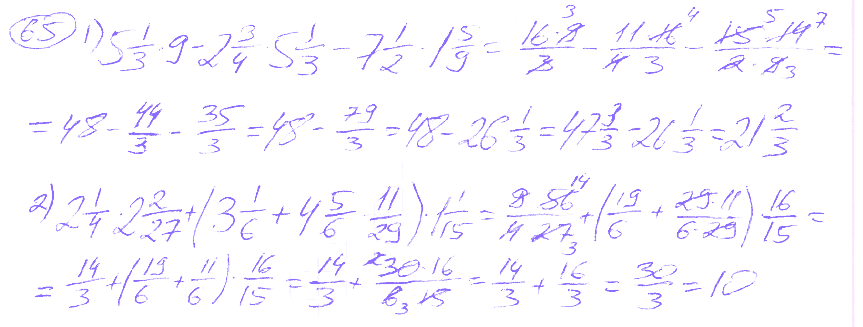 65 1) 5 1/3 · 9 - 2 3/4 · 5 1/3 - 7 1/2 · 1 5/9 = 16·9 3/3 - 11·16 4/4 3 - 15 5·14 7/2·9 3 =
= 48 - 44/3 - 35/3 = 48 - 79/3 = 48 - 26 1/3 = 47 3/3 - 26 1/3 = 21 2/3
2) 2 1/4 · 2 2/27 + (3 1/6 + 4 5/6 · 11/29) · 1 1/15 = 9·56 14/4 27 3 + (19/6 + 29·11/6·29) 16/15 =
= 14/3 + (19/6 + 11/6) · 16/15 = 14/3 + 2 30·16/6 3 15 = 14/3 + 16/3 = 30/3 = 10